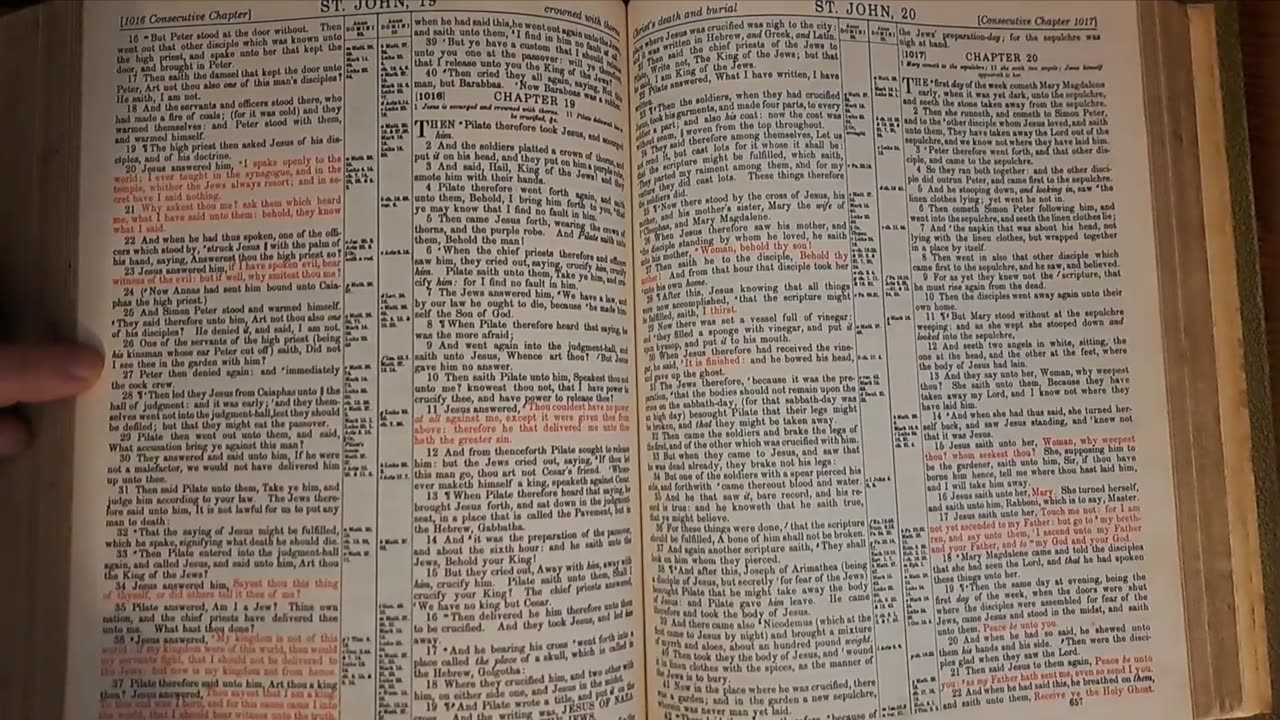 [1016 Consecutive Chapter]
ST. JOHN, 19
crowned with thorns
16 But Peter stood at the door without. Then
went out that other disciple which was known unto
the high priest, and spake unto her that kept the
door, and brought in Peter.
17 Then saith the damsel that kept the door unto
Peter, Art not thou also one of this man's disciples?
He saith, I am not.
18 And the servants and officers stood there, who
had made a fire of coals; (for it was cold) and they
warmed themselves: and Peter stood with them,
and warmed himself.
19 ¶ The high priest then asked Jesus of his dis-
ciples, and of his doctrine.
20 Jesus answered him, I spake openly to the
world; I ever taught in the synagogue, and in the
temple, whither the Jews always resort; and in se-
cret have I said nothing.
21 Why askest thou me? ask them which heard
me, what I have said unto them: behold, they know
what I said.
22 And when he had thus spoken, one of the offi-
cers which stood by, struck Jesus with the palm of
his hand, saying, Answerest thou the high priest so?
23 Jesus answered him, If I have spoken evil, bear
witness of the evil: but if well, why smitest thou me?
24 (Now Annas had sent him bound unto Caia-
phas the high priest.)
25 And Simon Peter stood and warmed himself.
They said therefore unto him, Art not thou also one
of his disciples? He denied it, and said, I am not.
26 One of the servants of the high priest (being
his kinsman whose ear Peter cut off) saith, Did not
I see thee in the garden with him?
27 Peter then denied again: and immediately
the cock crew.
28 ¶ Then led they Jesus from Caiaphas unto the
hall of judgment: and it was early; and they them-
selves went not into the judgment-hall, lest they should
be defiled; but that they might eat the passover.
29 Pilate then went out unto them, and said,
What accusation bring ye against this man?
30 They answered and said unto him, If he were
not a malefactor, we would not have delivered him
up unto thee.
31 Then said Pilate unto them, Take ye him, and
judge him according to your law. The Jews there-
fore said unto him, It is not lawful for us to put any
man to death:
32 That the saying of Jesus might be fulfilled,
which he spake, signifying what death he should die.
33 Then Pilate entered into the judgment-hall
again, and called Jesus, and said unto him, Art thou
the King of the Jews?
34 Jesus answered him, Sayest thou this thing
of thyself, or did others tell it thee of me?
35 Pilate answered, Am I a Jew? Thine own
nation, and the chief priests have delivered thee
unto me. What hast thou done?
36 Jesus answered, My kingdom is not of this
world: if my kingdom were of this world, then would
my servants fight, that I should not be delivered to
the Jews: but now is my kingdom not from hence.
37 Pilate therefore said unto him, Art thou a king
then? Jesus answered, Thou sayest that I am a king.
To this end was I born, and for this cause came I into
the world, that I should bear witness unto the truth.
when he had said this, he went out again unto the
and saith unto them, I find in him no fault
39 But ye have a custom that I should
unto you one at the passover: will ye therefore
that I release unto you the King of the Jews?
40 Then cried they all again, saying, Not this
man, but Barabbas. Now Barabbas was a robber.
[1016]
CHAPTER 19
THEN Pilate therefore took Jesus, and scourged
him.
2 And the soldiers platted a crown of thorns, and
put it on his head, and they put on him a purple robe,
3 And said, Hail, King of the Jews! and they
smote him with their hands.
4 Pilate therefore went forth again, and saith
unto them, Behold, I bring him forth to you, that
ye may know that I find no fault in him.
5 Then came Jesus forth, wearing the crown of
thorns, and the purple robe. And Pilate saith unto
them, Behold the man!
6 When the chief priests therefore and officers
saw him, they cried out, saying, crucify him, crucify
him. Pilate saith unto them, Take ye him, and cru-
cify him: for I find no fault in him.
7 The Jews answered him, We have a law, and
by our law he ought to die, because he made him-
self the Son of God.
8 ¶ When Pilate therefore heard that saying, he
was the more afraid;
9 And went again into the judgment-hall, and
saith unto Jesus, Whence art thou? But Jesus
gave him no answer.
10 Then saith Pilate unto him, Speakest thou not
unto me? knowest thou not, that I have power to
crucify thee, and have power to release thee?
11 Jesus answered, Thou couldest have no power
at all against me, except it were given thee from
above: therefore he that delivered me unto thee
hath the greater sin.
12 And from thenceforth Pilate sought to release
him: but the Jews cried out, saying, If thou let
this man go, thou art not Cesar's friend. Whoso-
ever maketh himself a king, speaketh against Cesar.
13 ¶ When Pilate therefore heard that saying, he
brought Jesus forth, and sat down in the judgment
seat, in a place that is called the Pavement, but in
the Hebrew, Gabbatha.
14 And it was the preparation of the passover,
and about the sixth hour: and he saith unto the
Jews, Behold your King!
15 But they cried out, Away with him, away with
him, crucify him. Pilate saith unto them, Shall I
crucify your King? The chief priests answered,
We have no king but Cesar.
16 Then delivered he him therefore unto them
to be crucified. And they took Jesus, and led him
away.
17 And he bearing his cross went forth into a
place called the place of a skull, which is called in
the Hebrew, Golgotha:
18 Where they crucified him, and two other with
him, on either side one, and Jesus in the midst.
19 ¶ And Pilate wrote a title, and put it on the
And the writing was, JESUS OF
Christ's death and burial
ST. JOHN, 20
[Consecutive Chapter 1017]
place where Jesus was crucified was nigh to the city:
it was written in Hebrew, and Greek, and Latin.
Then said the chief priests of the Jews to
Pilate, Write not, The King of the Jews; but that
I am King of the Jews.
Pilate answered, What I have written, I have
written.
Then the soldiers, when they had crucified
took his garments, and made four parts, to every
a part; and also his coat: now the coat was
seam, woven from the top throughout.
They said therefore among themselves, Let us
rend it, but cast lots for it whose it shall be:
the scripture might be fulfilled, which saith,
They parted my raiment among them, and for my
vesture they did cast lots. These things therefore
the soldiers did.
Now there stood by the cross of Jesus, his
mother, and his mother's sister, Mary the wife of
Cleophas, and Mary Magdalene.
When Jesus therefore saw his mother, and
disciple standing by whom he loved, he saith
his mother, Woman, behold thy son!
Then saith he to the disciple, Behold thy
mother! And from that hour that disciple took her
unto his own home.
28 ¶ After this, Jesus knowing that all things
were now accomplished, that the scripture might
be fulfilled, saith, I thirst.
29 Now there was set a vessel full of vinegar:
they filled a sponge with vinegar, and put it
upon hyssop, and put it to his mouth.
30 When Jesus therefore had received the vine-
gar, he said, It is finished: and he bowed his head,
and gave up the ghost.
31 The Jews therefore, because it was the pre-
paration, that the bodies should not remain upon the
cross on the sabbath-day, (for that sabbath-day was
an high day) besought Pilate that their legs might
be broken, and that they might be taken away.
32 Then came the soldiers and brake the legs of
the first, and of the other which was crucified with him.
33 But when they came to Jesus, and saw that
he was dead already, they brake not his legs:
34 But one of the soldiers with a spear pierced his
side, and forthwith came thereout blood and water.
35 And he that saw it, bare record, and his re-
cord is true: and he knoweth that he saith true,
that ye might believe.
36 For these things were done, that the scripture
should be fulfilled, A bone of him shall not be broken.
37 And again another scripture saith, They shall
look on him whom they pierced.
38 ¶ And after this, Joseph of Arimathea (being
a disciple of Jesus, but secretly for fear of the Jews)
besought Pilate that he might take away the body
of Jesus: and Pilate gave him leave. He came
therefore and took the body of Jesus.
39 And there came also Nicodemus (which at the
first came to Jesus by night) and brought a mixture
of myrrh and aloes, about an hundred pound weight.
40 Then took they the body of Jesus, and wound
it in linen clothes with the spices, as the manner of
the Jews is to bury.
41 Now in the place where he was crucified, there
was a garden; and in the garden a new sepulchre,
wherein was never man yet laid.
because of
the Jews' preparation-day; for the sepulchre was
nigh at hand.
[1017]
CHAPTER 20
THE first day of the week cometh Mary Magdalene
early, when it was yet dark, unto the sepulchre,
and seeth the stone taken away from the sepulchre.
2 Then she runneth, and cometh to Simon Peter,
and to the other disciple whom Jesus loved, and saith
unto them, They have taken away the Lord out of the
sepulchre, and we know not where they have laid him.
3 Peter therefore went forth, and that other dis-
ciple, and came to the sepulchre.
4 So they ran both together: and the other disci-
ple did outrun Peter, and came first to the sepulchre.
5 And he stooping down, and looking in, saw the
linen clothes lying; yet went he not in.
6 Then cometh Simon Peter following him, and
went into the sepulchre, and seeth the linen clothes lie;
7 And the napkin that was about his head, not
lying with the linen clothes, but wrapped together
in a place by itself.
8 Then went in also that other disciple which
came first to the sepulchre, and he saw, and believed.
9 For as yet they knew not the scripture, that
he must rise again from the dead.
10 Then the disciples went away again unto their
own home.
11 ¶ But Mary stood without at the sepulchre
weeping: and as she wept she stooped down and
looked into the sepulchre,
12 And seeth two angels in white, sitting, the
one at the head, and the other at the feet, where
the body of Jesus had lain.
13 And they say unto her, Woman, why weepest
thou? She saith unto them, Because they have
taken away my Lord, and I know not where they
have laid him.
14 And when she had thus said, she turned her-
self back, and saw Jesus standing, and knew not
that it was Jesus.
15 Jesus saith unto her, Woman, why weepest
thou? whom seekest thou? She, supposing him to
be the gardener, saith unto him, Sir, if thou have
borne him hence, tell me where thou hast laid him,
and I will take him away.
16 Jesus saith unto her, Mary. She turned herself,
and saith unto him, Rabboni, which is to say, Master.
17 Jesus saith unto her, Touch me not: for I am
not yet ascended to my Father: but go to my breth-
ren, and say unto them, I ascend unto my Father
and your Father, and to my God and your God.
18 Mary Magdalene came and told the disciples
that she had seen the Lord, and that he had spoken
these things unto her.
19 ¶ Then the same day at evening, being the
first day of the week, when the doors were shut
where the disciples were assembled for fear of the
Jews, came Jesus and stood in the midst, and saith
unto them, Peace be unto you.
20 And when he had so said, he shewed unto
them his hands and his side. Then were the disci-
ples glad when they saw the Lord.
21 Then said Jesus to them again, Peace be unto
you: as my Father hath sent me, even so send I you.
22 And when he had said this, he breathed on them,
and saith unto them, Receive ye the Holy Ghost.
657